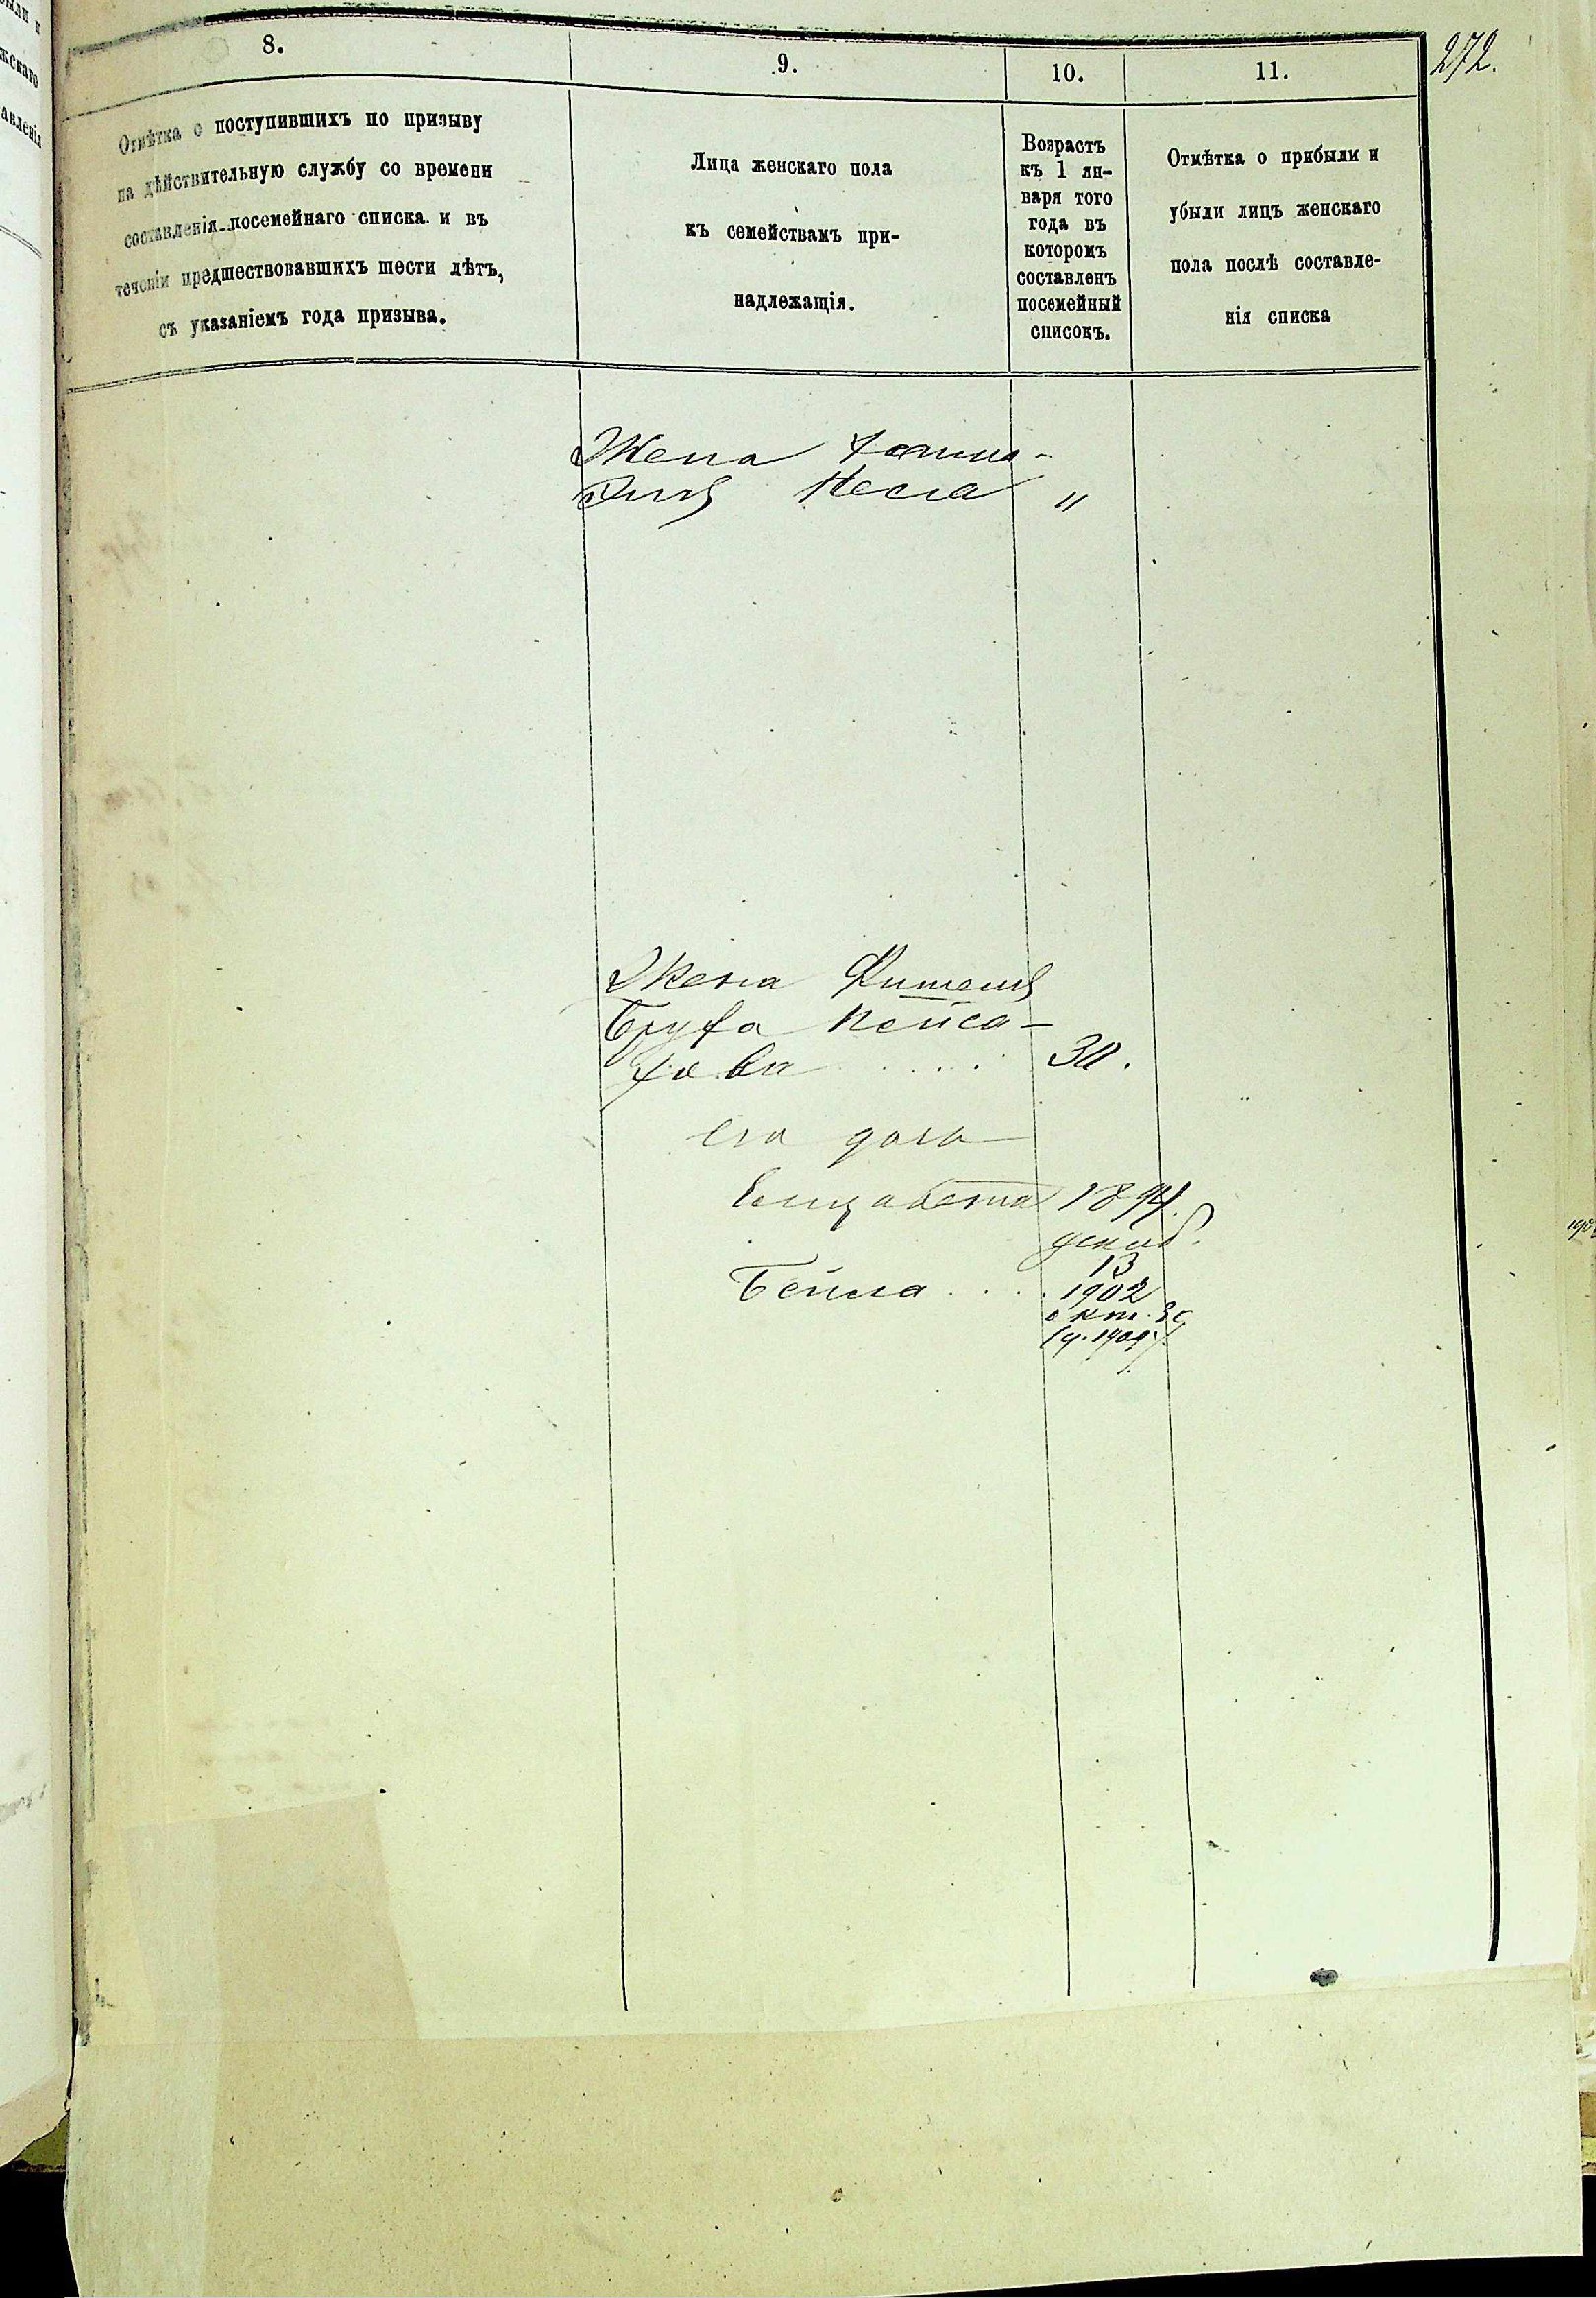 272.
8.
9.
10.
11.
Отмѣтка о поступившихъ по призыву
на дѣйствительную службу со времени
составленія посемейнаго списка и въ
теченіи предшествовавшихъ шести лѣтъ,
съ указаніемъ года призыва.
Лица женскаго пола
къ семействамъ при-
надлежащія.
Возрастъ
къ 1 ян-
варя того
года въ
которомъ
составленъ
посемейный
списокъ.
Отмѣтка о прибыли и
убыли лицъ женскаго
пола послѣ составле-
нія списка
Жена
Песса "
Жена Фишеля
Бруха Пейса-
ховна 30.
его дочь
Елизавета 1894.
декаб.
13
Бейла 1902
окт. 30